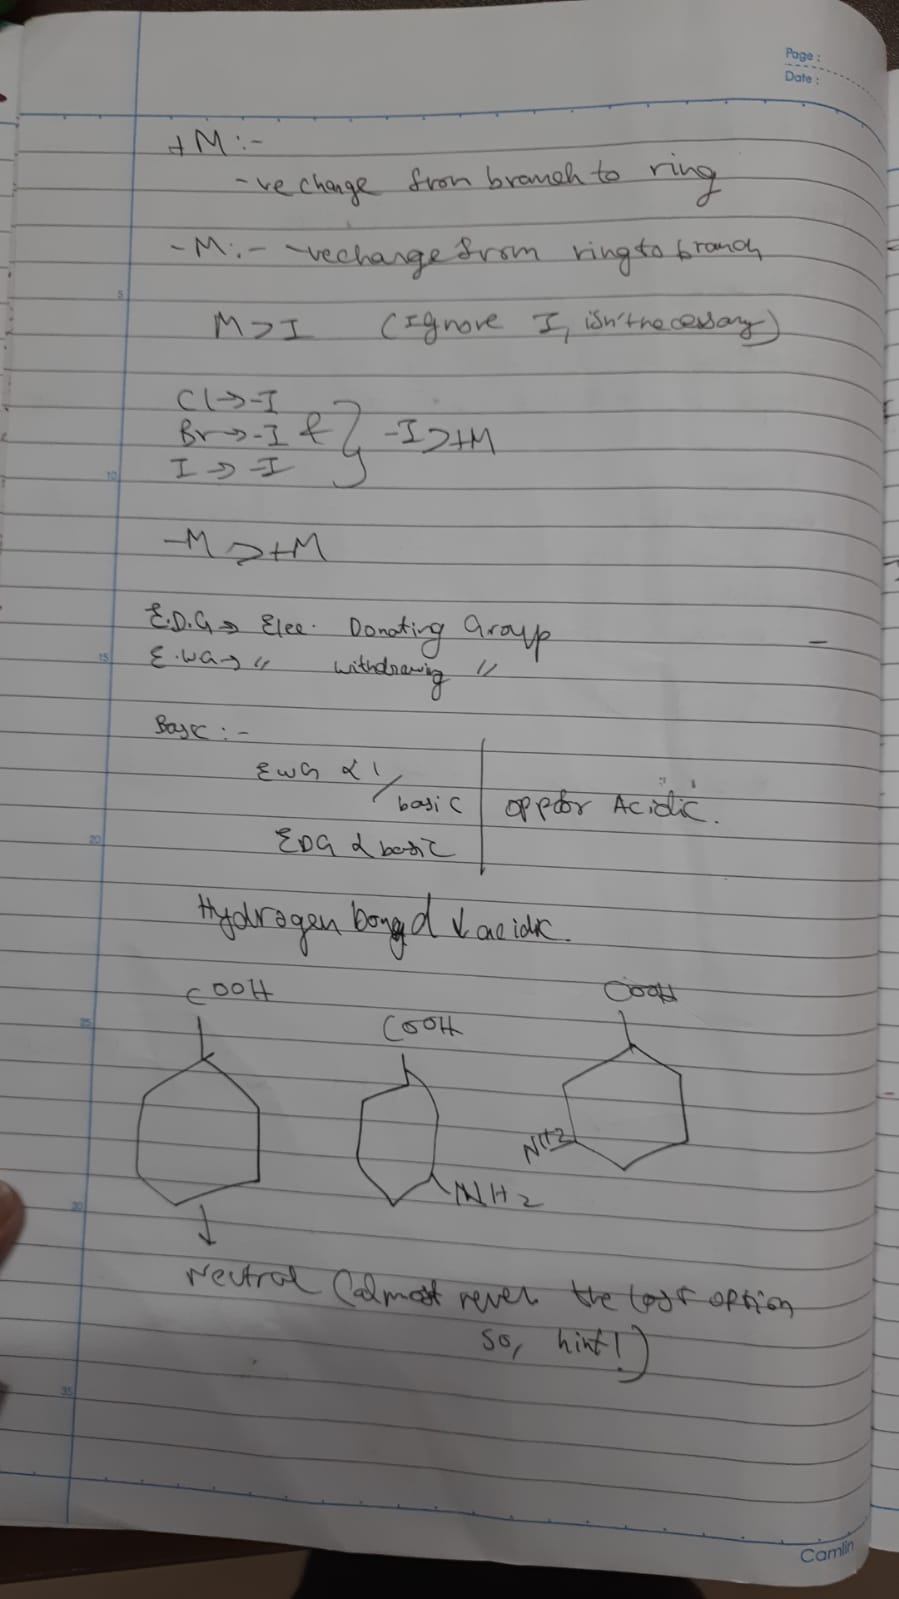 Page :
Date :
+M :-
-ve change from branch to ring
-M :- -ve change from ring to branch
5
M > I (Ignore I, isn't necessary)
Cl → -I
Br → -I & } -I > +M
I → -I
10
-M > +M
E.D.G → Elec. Donating Group
15
E.WG → " withdrawing "
Basic :-
EWG α 1/basic | opp for Acidic.
20
EDG α basic
Hydrogen bond ↓ acidic.
COOH COOH COOH
25
NH2 NH2
30
Neutral (almost never the last option
so, hint!)
35
Camlin